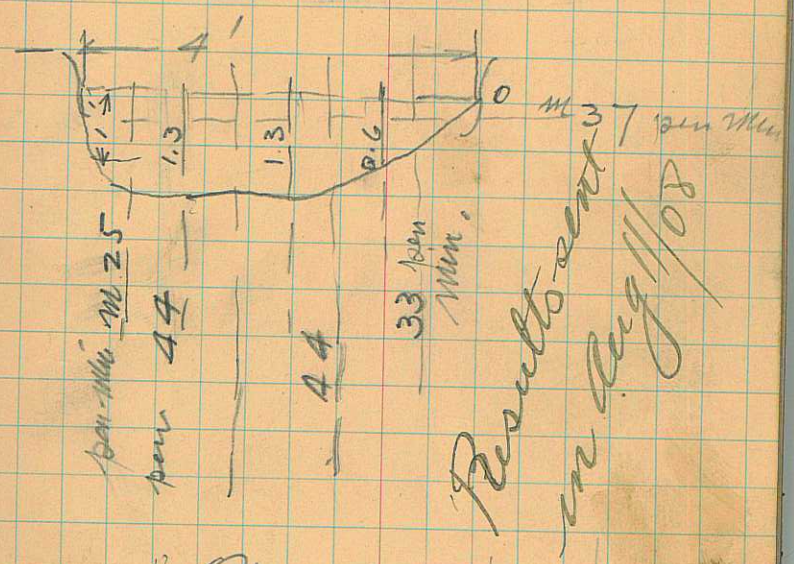 4'
1'
1.3
1.3
0.6
0
m 37 per min
per min m 25
per 44
44
33 per
min.
Results sent
in Aug 11/08